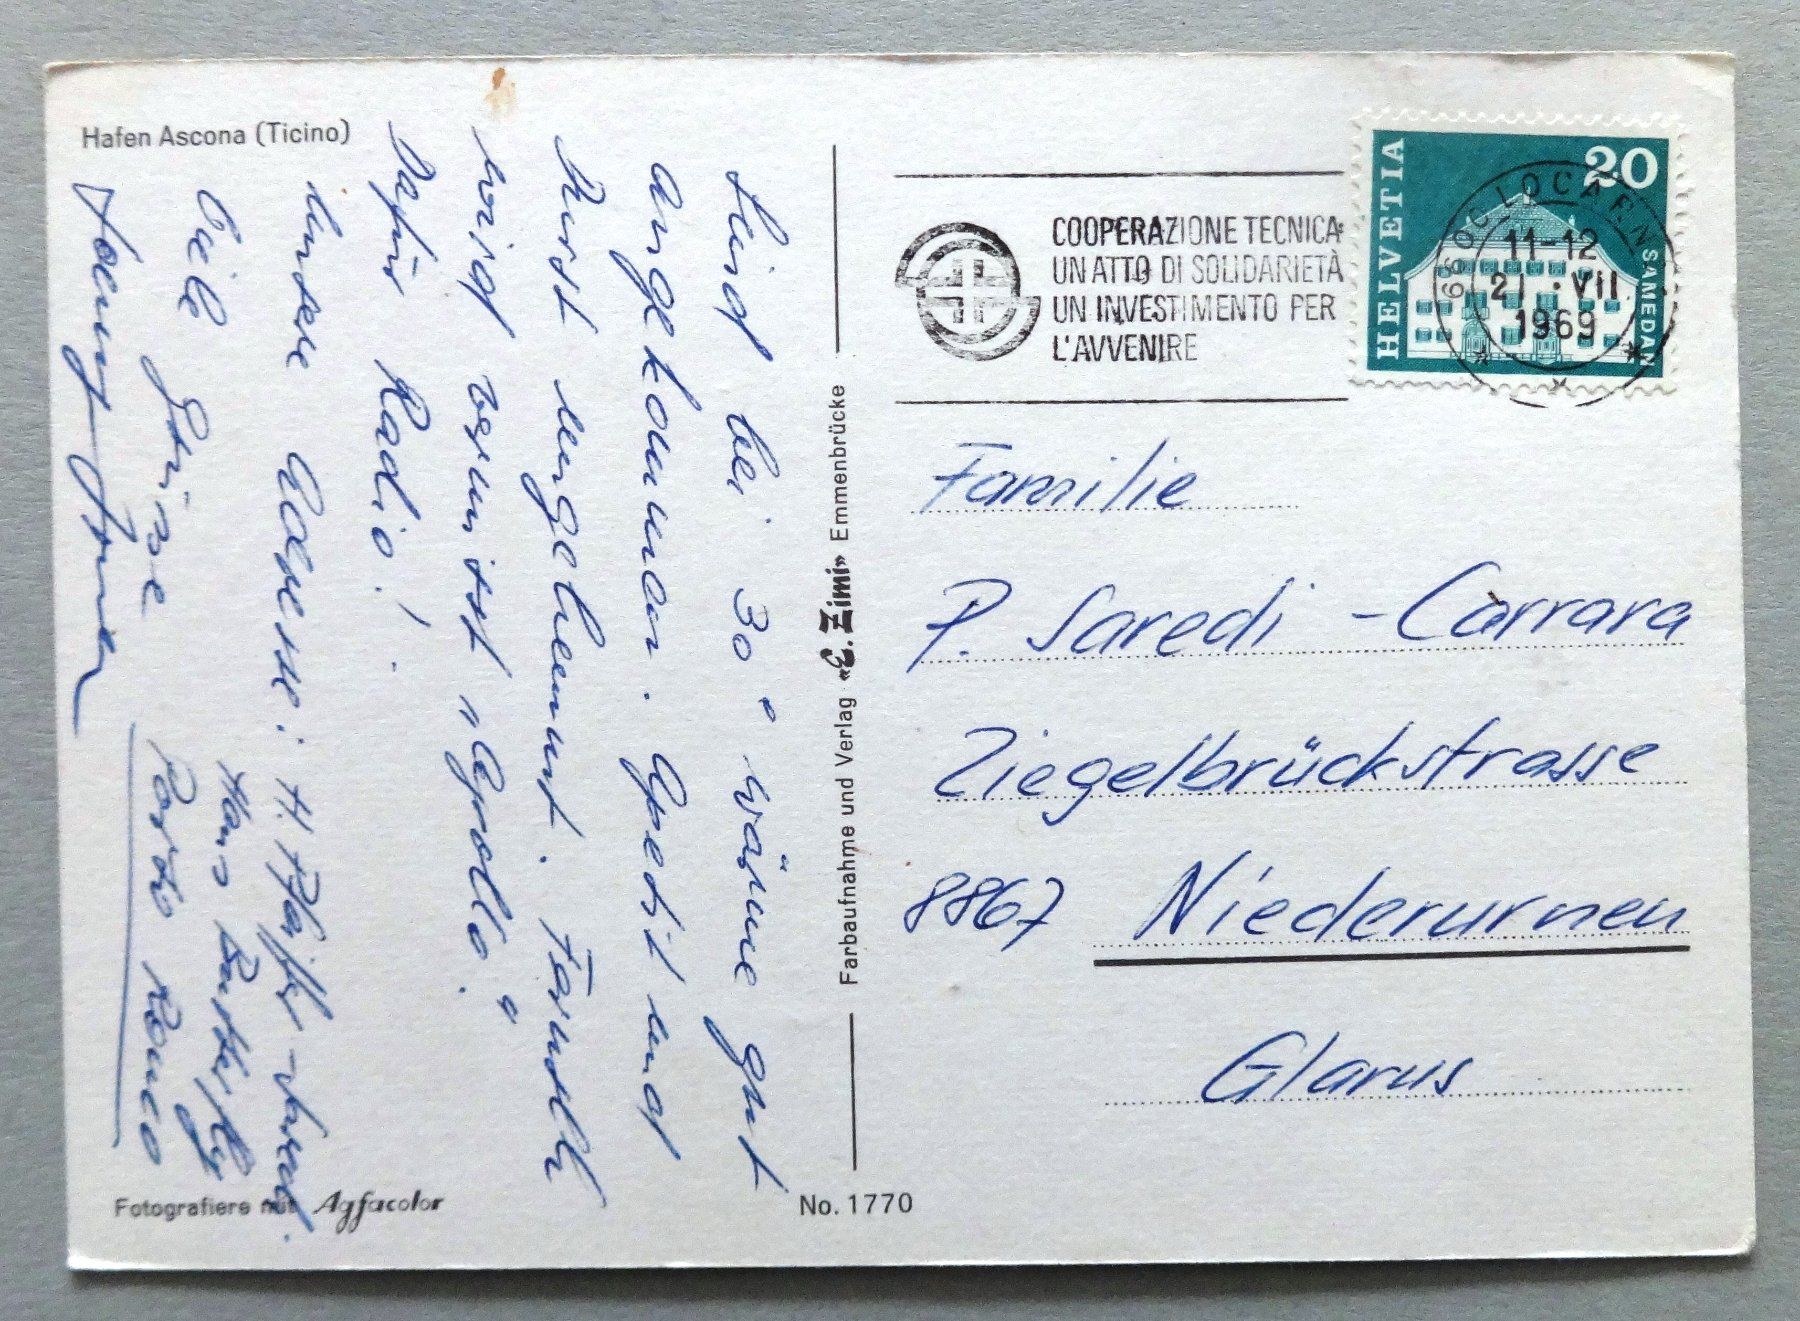 Hafen Ascona (Ticino)
Sind bei 30° Wärme gut
angekommen. Apetit und
Durst ungehemmt. Fernseh
wird vermisst „Apollo“.
Dafür Radio!
Unsere Adresse: H. Pfeiffer-Saredi.
Viele Grüsse
Hans
Porto Ronco
Farbaufnahme und Verlag «E. Zimi» Emmenbrücke
Fotografiere mit Agfacolor
No. 1770
COOPERAZIONE TECNICA
UN ATTO DI SOLIDARIETÀ
UN INVESTIMENTO PER
L'AVVENIRE
HELVETIA
20
SAMEDAN
6600 LOCARNO
11-12
21.VII
1969
Familie
P. Saredi - Carrara
Ziegelbrückstrasse
8867 Niederurnen
Glarus